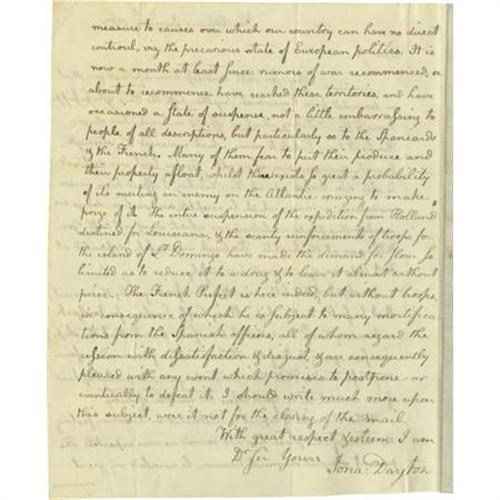 measure to causes over which our country can have no direct
controul, viz the precarious state of European politics. It is
now a month at least since rumors of war recommenced, or
about to recommence have reached these territories, and have
occasioned a state of suspense, not a little embarrassing to
people of all descriptions, but particularly so to the Spaniards
& the French. Many of them fear to put their produce and
their property afloat, whilst there exists so great a probability
of its meeting an enemy on the Atlantic cruizing to make
prize of it. The entire suspension of the expedition from Holland
destined for Louisiana, & the scanty reinforcements of troops for
the island of St Domingo have made the demand for flour so
limited as to reduce it to a drug & to leave it almost without
price. The French Prefect is here indeed, but without troops,
in consequence of which he is subject to many mortifica
tions from the Spanish officers, all of whom regard the
cession with dissatisfaction & disgust, & are consequently
pleased with any event which promises to postpone or
eventually to defeat it. I should write much more upon
this subject, were it not for the closing of the mail.
With great respect & esteem I am
Dr Sir Yours
Jona: Dayton